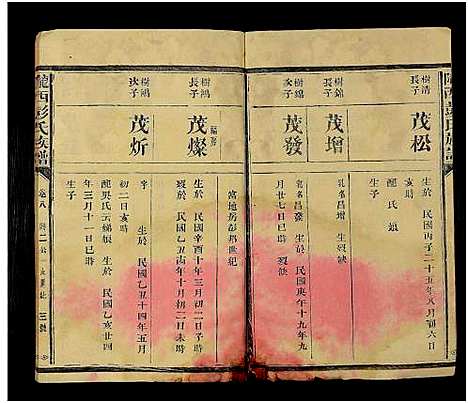 隴西彭氏族譜
樹清
長子
茂松
生於民國丙子二十五年八月初六日
醒氏娘
生子
樹錦
長子
茂增
乳名昌增 生裂缺
樹錦
次子
茂發
乳名昌發 生於民國庚午十九年九
月廿七日 裂缺
當地房彭邦世紀
樹鴻
長子
茂燦
編彥
生於民國辛酉十年三月初二日
裂於民國乙丑十四年十月初二日未時
樹鴻
次子
茂炘
辛 生於民國乙丑十四年五月
初二日亥時
醒吳氏云娣娘 生於民國乙亥廿四
年三月十一日巳時
生子
隴西彭氏族譜
卷八
三號